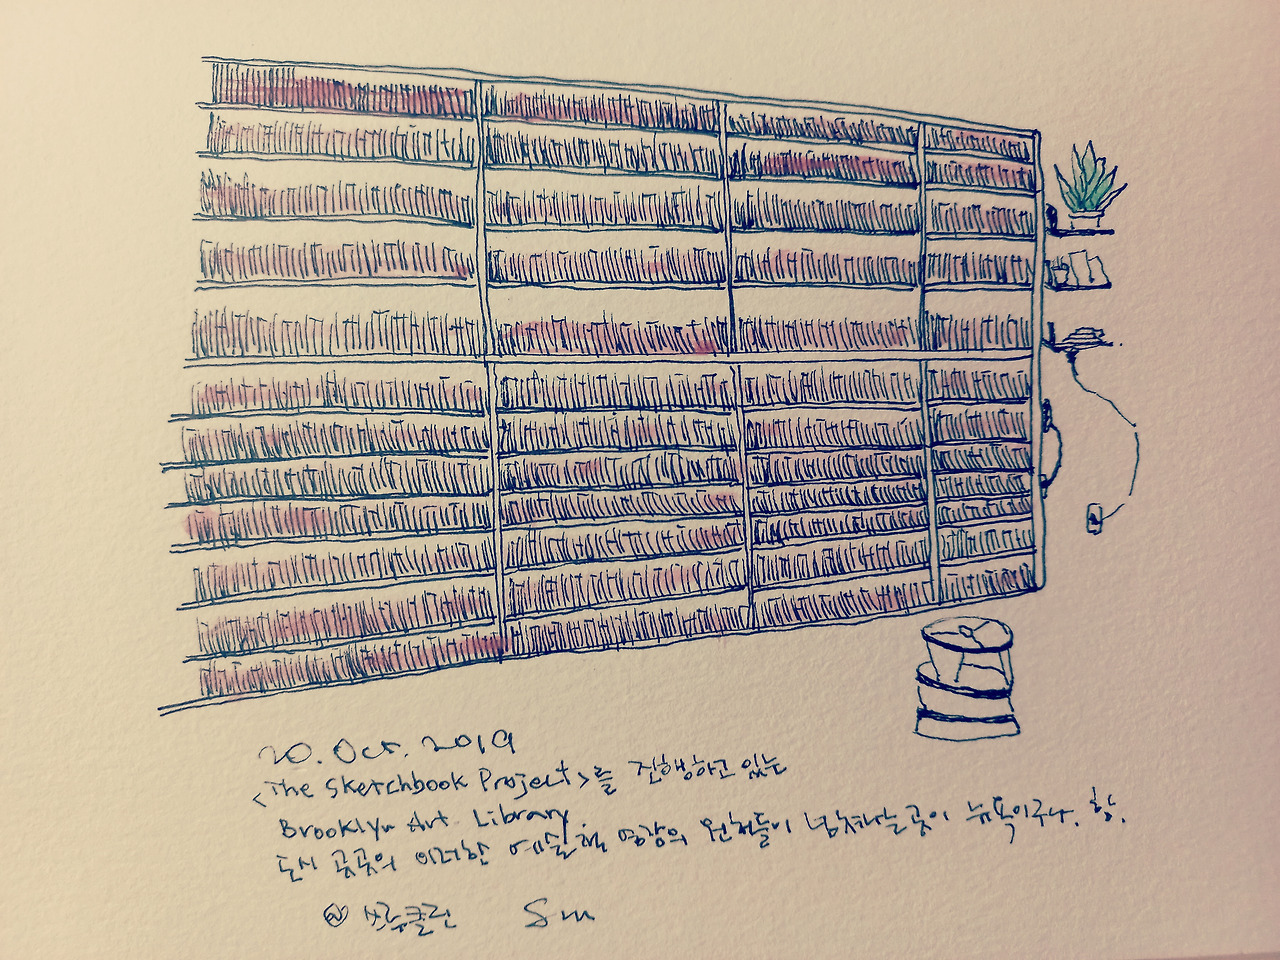 20. Oct. 2019
<The Sketchbook Project>를 진행하고 있는
Brooklyn Art Library.
도시 곳곳의 이러한 예술적 영감의 원천들이 넘쳐나는 곳이 뉴욕이구나. 함.
@ 브루클린 Sm